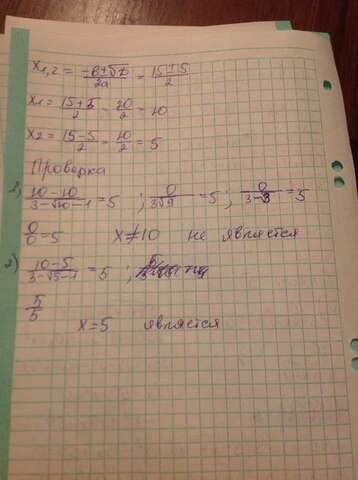 x₁,₂ = (-b±√D)/2a = (15±5)/2
x₁ = (15+5)/2 = 20/2 = 10
x₂ = (15-5)/2 = 10/2 = 5
Проверка
1) (10-10)/(3-√10-1) = 5 ; 0/(3√9) = 5 ; 0/(3-3) = 5
0/0 = 5 x≠10 не является
2) (10-5)/(3-√5-1) = 5 ;
5/5 x=5 явлется